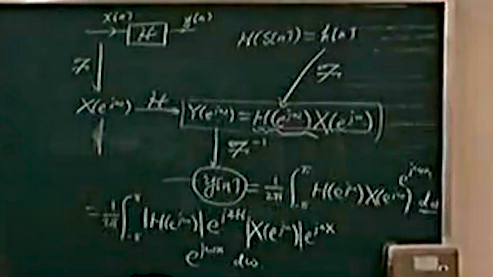 x(n) → H → y(n)
H(δ(n)) = h(n)
X(e^{jω}) H→ Y(e^{jω}) = H(e^{jω}) X(e^{jω})
y[n] = \frac{1}{2π} ∫_{-π}^{π} H(e^{jω}) X(e^{jω}) e^{jωn} dω
= \frac{1}{2π} ∫_{-π}^{π} |H(e^{jω})| e^{j∡H} |X(e^{jω})| e^{j∡X}
e^{jωn} dω